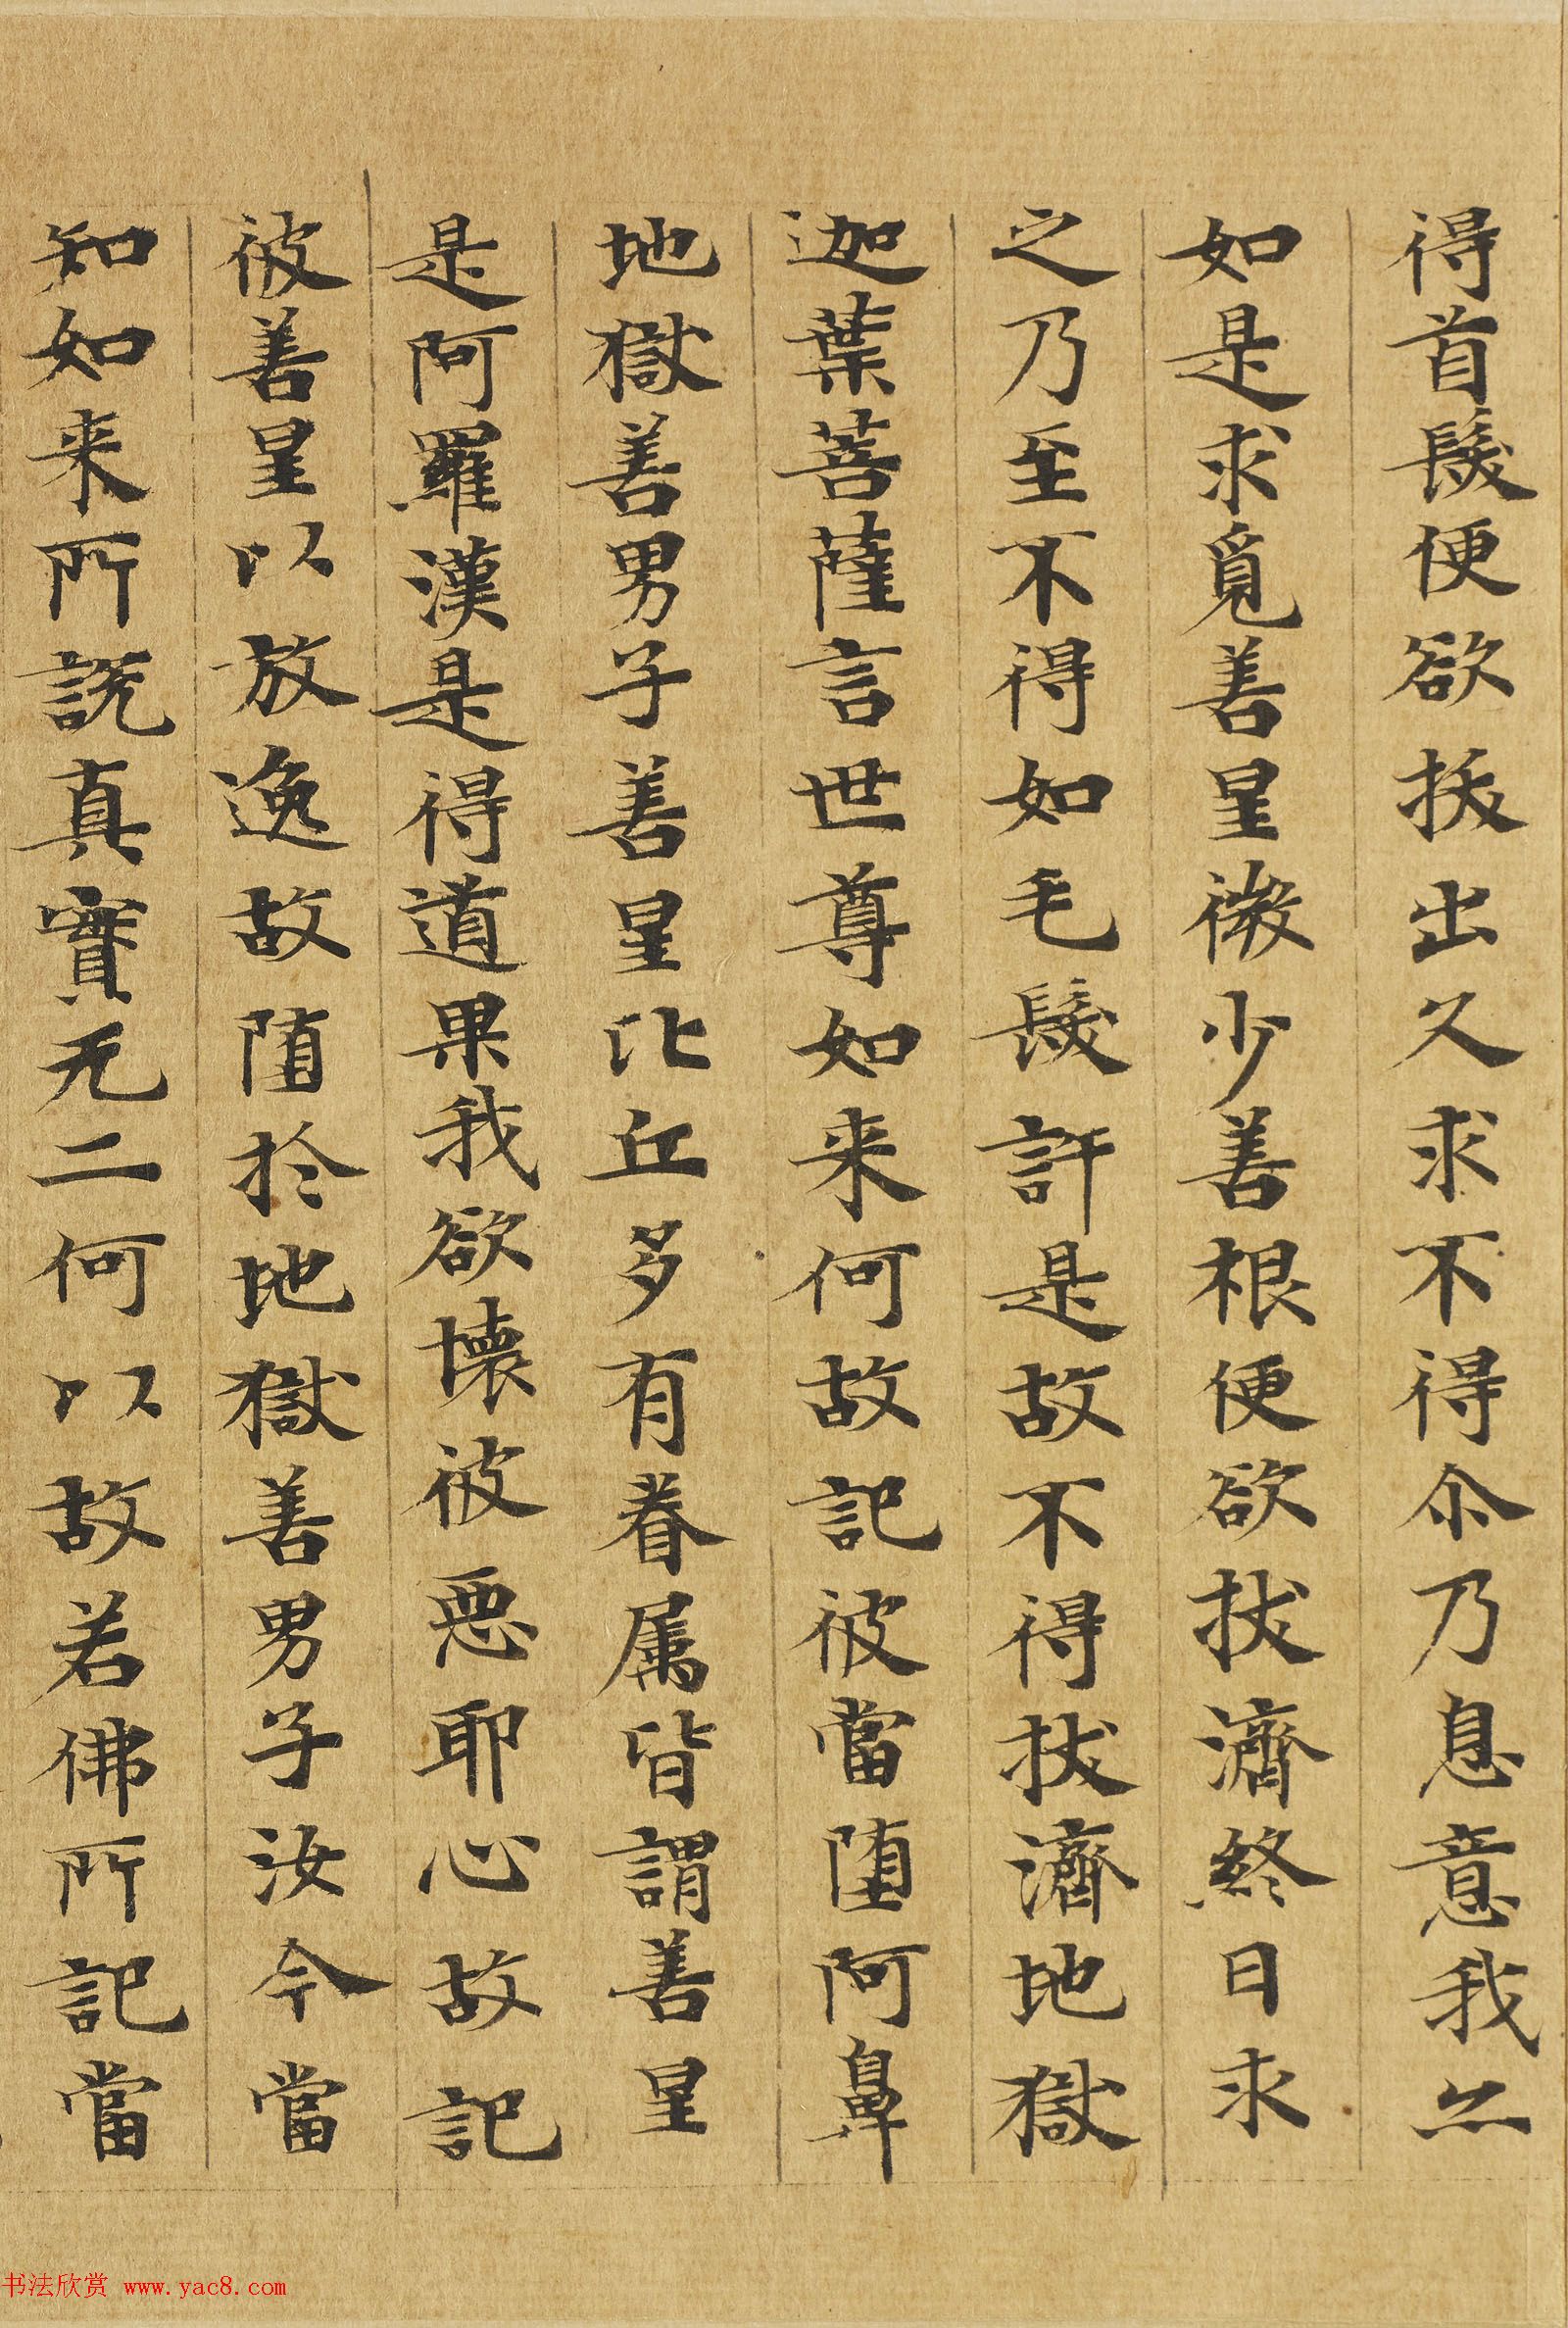 得首髮便欲拔出久求不得尒乃息意我亦
如是求覓善星微少善根便欲拔濟終日求
之乃至不得如毛髮許是故不得拔濟地獄
迦葉菩薩言世尊如来何故記彼當堕阿鼻
地獄善男子善星比丘多有眷属皆謂善星
是阿羅漢是得道果我欲壊彼惡耶心故記
彼善星以放逸故堕於地獄善男子汝今當
知如来所説真實无二何以故若佛所記當
书法欣赏 www.yac8.com